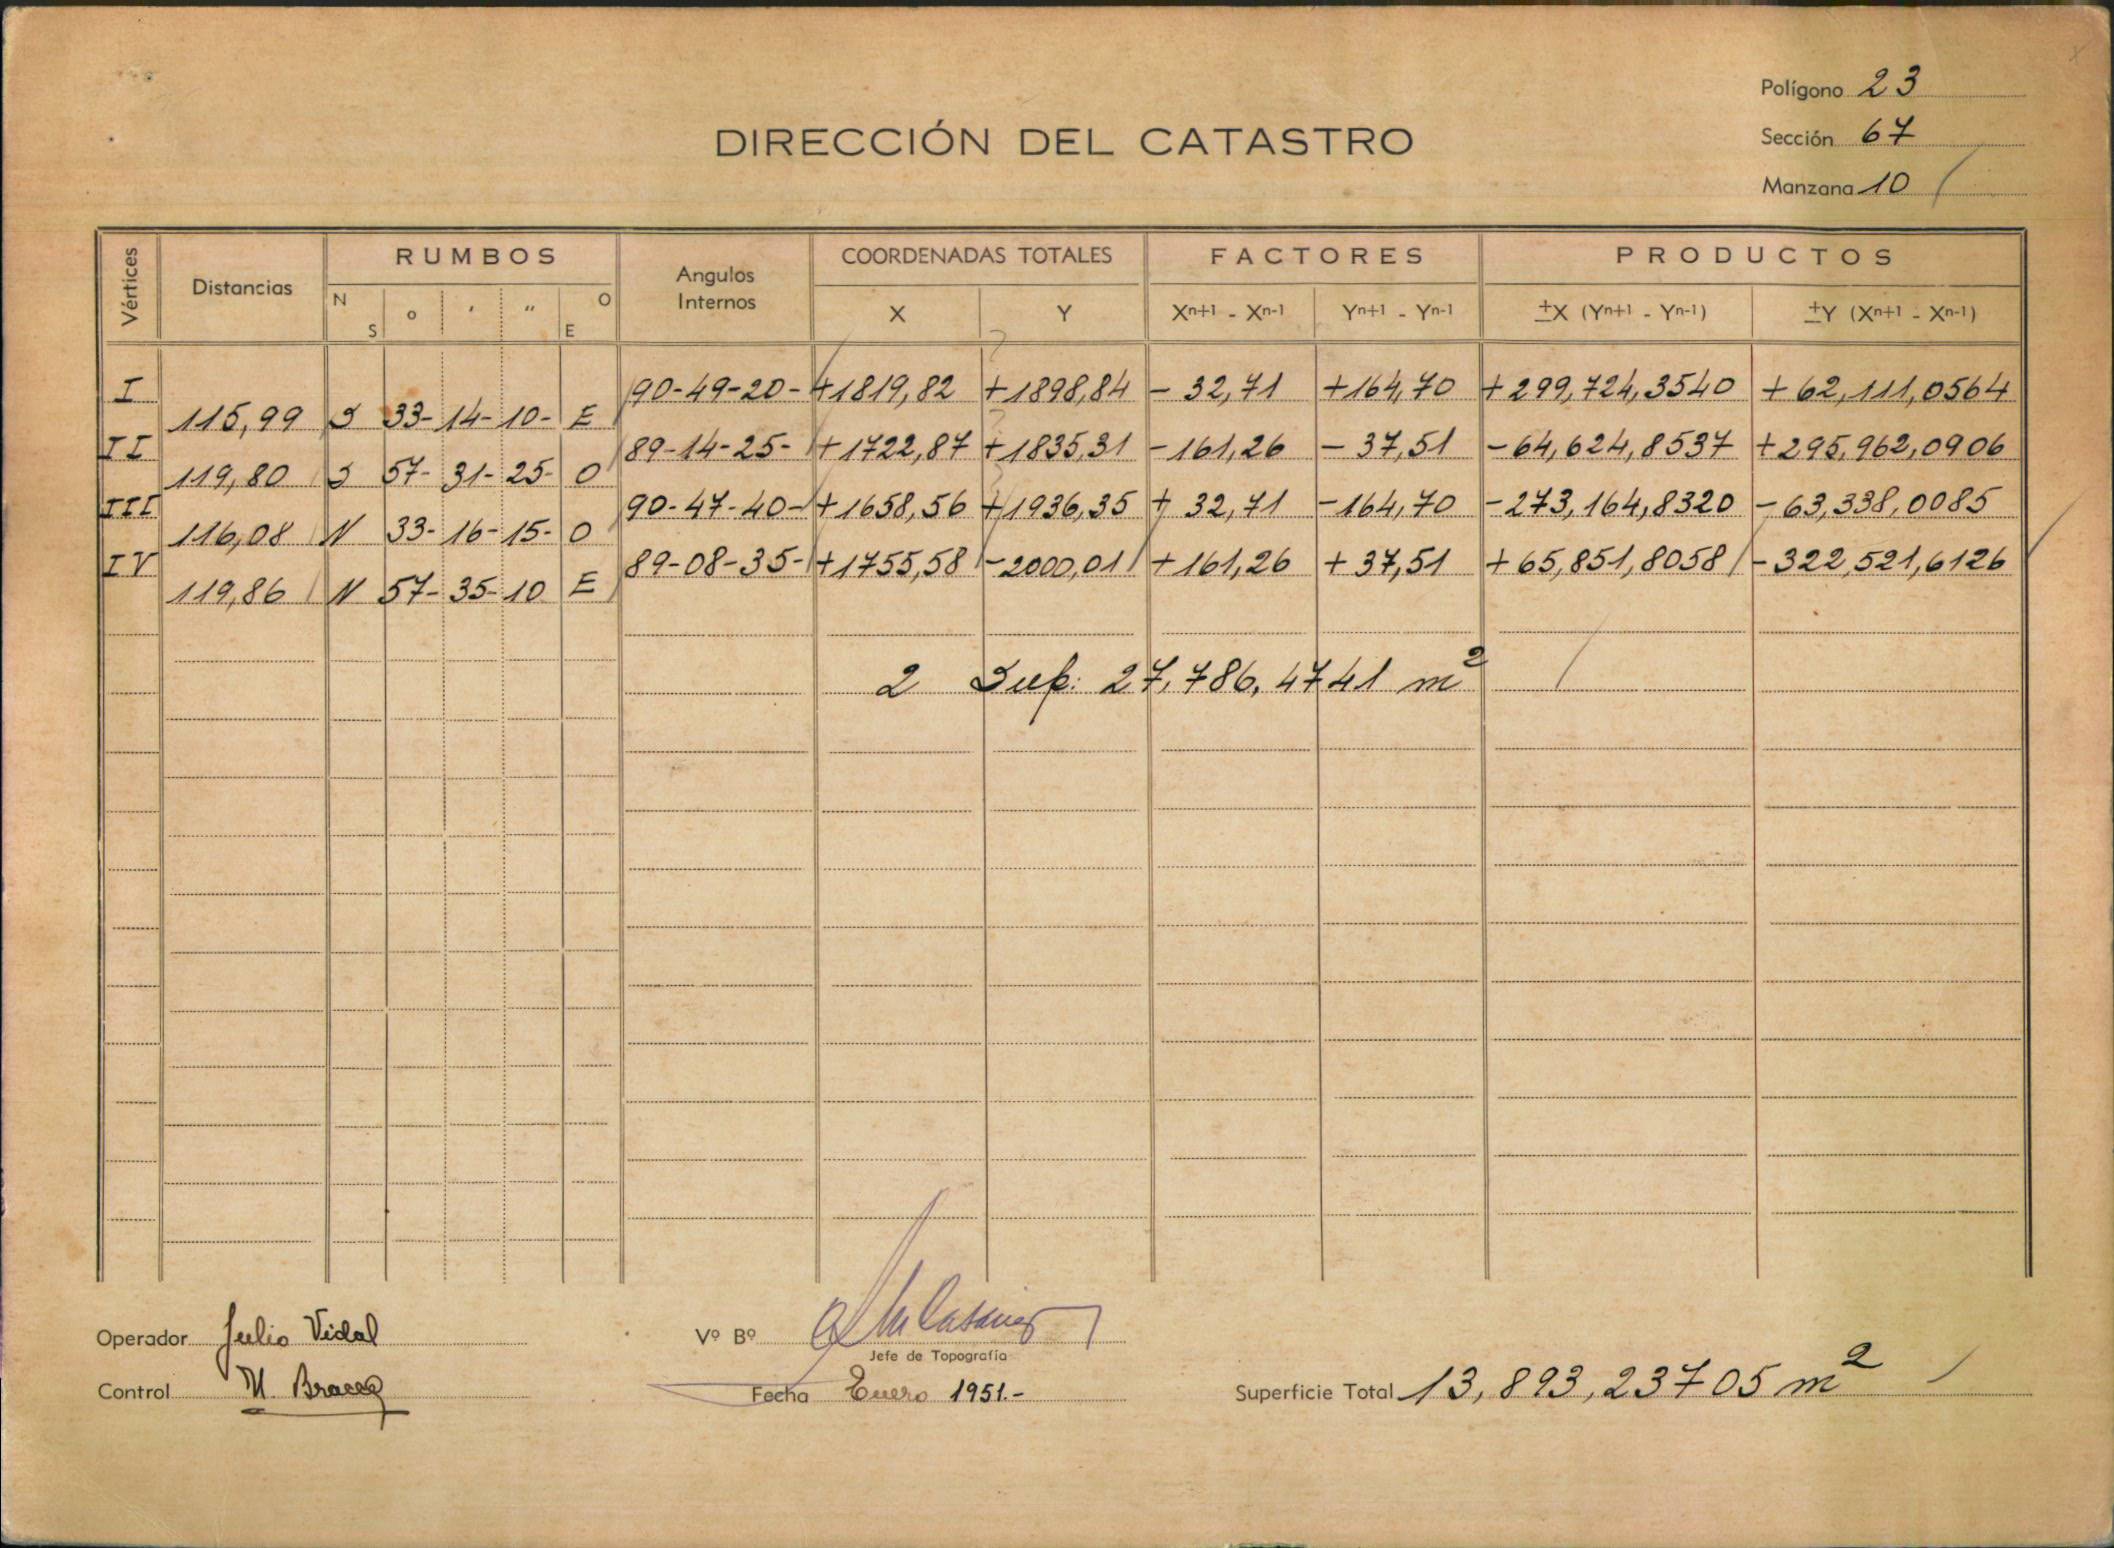 Polígono 23
DIRECCIÓN DEL CATASTRO
Sección 67
Manzana 10
Vértices Distancias RUMBOS Angulos Internos COORDENADAS TOTALES FACTORES PRODUCTOS
N S o ′ ″ O E X Y Xn+1 - Xn-1 Yn+1 - Yn-1 ±X (Yn+1 - Yn-1) ±Y (Xn+1 - Xn-1)
I 90-49-20- +1819,82 +1898,84 - 32,71 +164,70 +299,724,3540 +62,111,0564
115,99 S 33- 14- 10- E
II 89-14-25- +1722,87 +1835,31 -161,26 - 37,51 -64,624,8537 +295,962,0906
119,80 S 57- 31- 25- O
III 90-47-40- +1658,56 +1936,35 + 32,71 -164,70 -273,164,8320 -63,338,0085
116,08 N 33- 16- 15- O
IV 89-08-35- +1755,58 -2000,01 +161,26 + 37,51 +65,851,8058 -322,521,6126
119,86 N 57- 35- 10 E
2 Sup: 27,786,4741 m2
Operador Julio Vidal
Vº Bº
Jefe de Topografía
Control
Fecha Enero 1951.-
Superficie Total 13,893,23705 m2